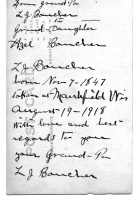 Grand-Pa
L J Boucher
to
Grand-Daughter
Boucher
L J Boucher
born Nov-7-1847
taken at Marshfield Wis
August-19-1918
With love and best
regards to you
your Grand-Pa
L J Boucher